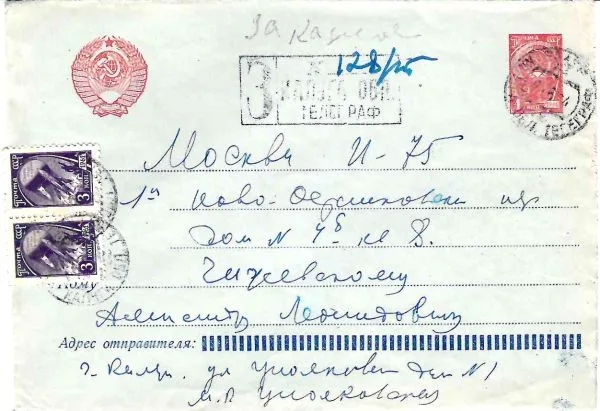 За
З
№ 128/рт
КАЛУГА ОБЛ.
ТЕЛЕГРАФ
Москва И-75
1я Ново-Останкинская
дом № 4б кв 8.
Кому Чижевскому
Александру Леонидовичу
Адрес отправителя:
г. Калуга ул Циолковского дом № 1
М.В. Циолковская
почта СССР
3 коп.
почта СССР
3 коп.